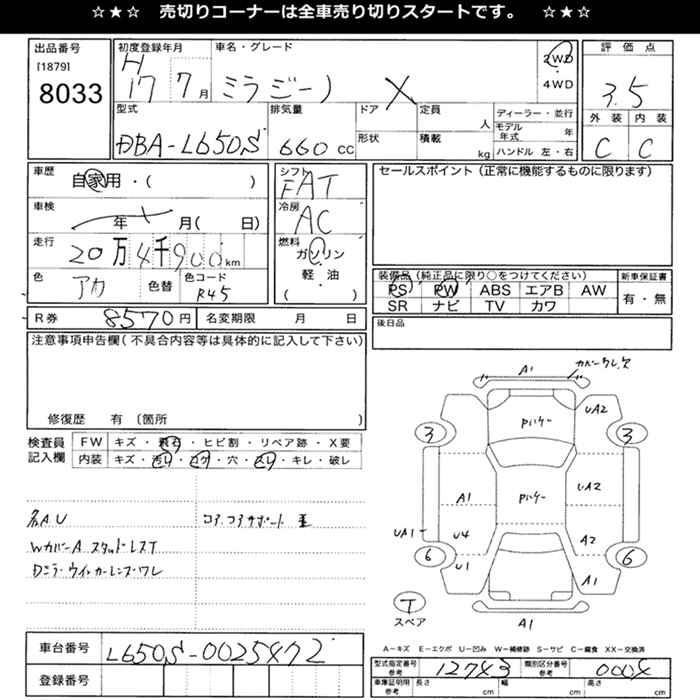 ☆★☆ 売切りコーナーは全車売り切りスタートです。 ☆★☆
出品番号
[1879]
8033
初度登録年月
H
17 7月
車名・グレード
ミラジーノ X
2WD
4WD
評価点
3.5
外装 内装
C C
型式
DBA-L650S
排気量
660 CC
ドア
形状
定員
人
積載
kg
ディーラー・並行
モデル年式 年
ハンドル 左・右
車歴
自家用・( )
シフト
FAT
セールスポイント(正常に機能するものに限ります)
車検
年 月( 日)
冷房
AC
走行
20万4千900km
燃料
ガソリン
軽・油
( )
色
アカ
色替
色コード
R45
装備品(純正品に限り○をつけてください)
PS PW ABS エアB AW
SR ナビ TV カワ
新車保証書
有・無
R券 8570円
名変期限 月 日
後日品
注意事項申告欄(不具合内容等は具体的に記入して下さい)
修復歴 有〔箇所 〕
検査員記入欄
FW キズ・飛石・ヒビ割・リペア跡・X要
内装 キズ・汚れ・コゲ・穴・スレ・キレ・破レ
各AU
コアコアサポート
WカバーA スタッドレスT
Dミラーウィンカーレンズワレ
A1
カバークレ,欠
Pハゲー
UA2
3
3
A1
Pハゲー
UA2
UA1
U4
A2
6
6
U1
A1
T
スペア
A1
A-キズ E-エクボ U-凹み W-補修跡 S-サビ C-腐食 XX-交換済
車台番号 L650S-0025472
登録番号
型式指定番号 参考 12743
類別区分番号 参考 0004
車庫証明用 参考 長さ cm 幅 cm 高さ cm